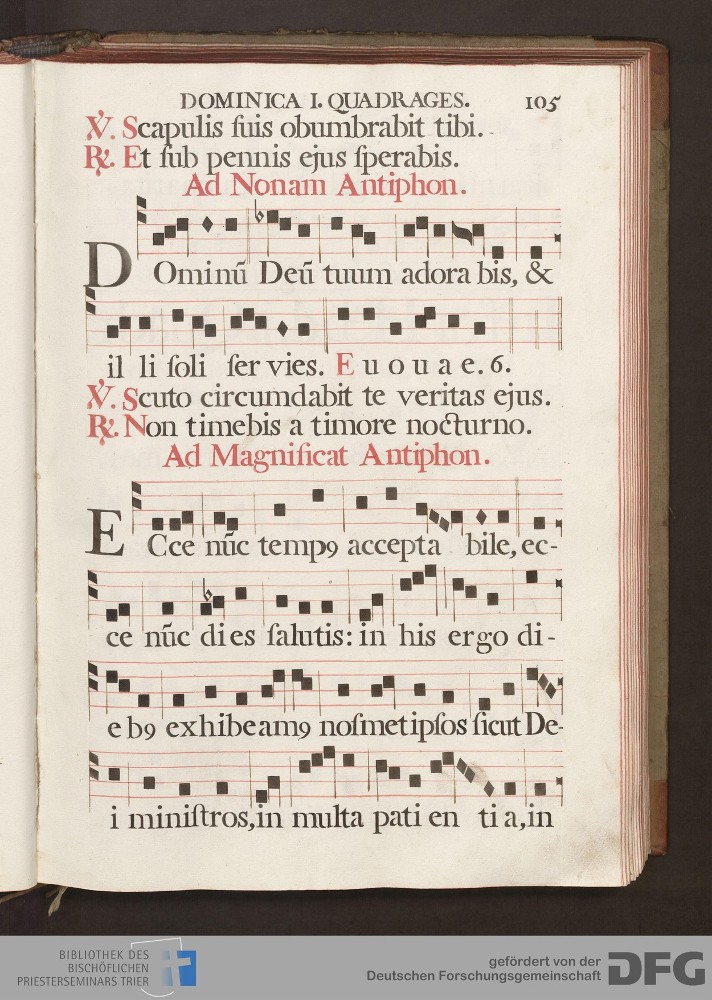 DOMINICA I. QUADRAGES. 105
℣. Scapulis ſuis obumbrabit tibi.
℟. Et ſub pennis ejus ſperabis.
Ad Nonam Antiphon.
DOminū Deū tuum adora bis, &
il li ſoli ſer vies. E u o u a e. 6.
℣. Scuto circumdabit te veritas ejus.
℟. Non timebis a timore nocturno.
Ad Magnificat Antiphon.
ECce nūc tempꝰ accepta bile, ec-
ce nūc di es ſalutis: in his ergo di-
e bꝰ exhibeamꝰ noſmetipſos ſicut De-
i miniſtros, in multa pati en ti a, in
BIBLIOTHEK DES
BISCHÖFLICHEN
PRIESTERSEMINARS TRIER
gefördert von der
Deutschen Forschungsgemeinschaft
DFG